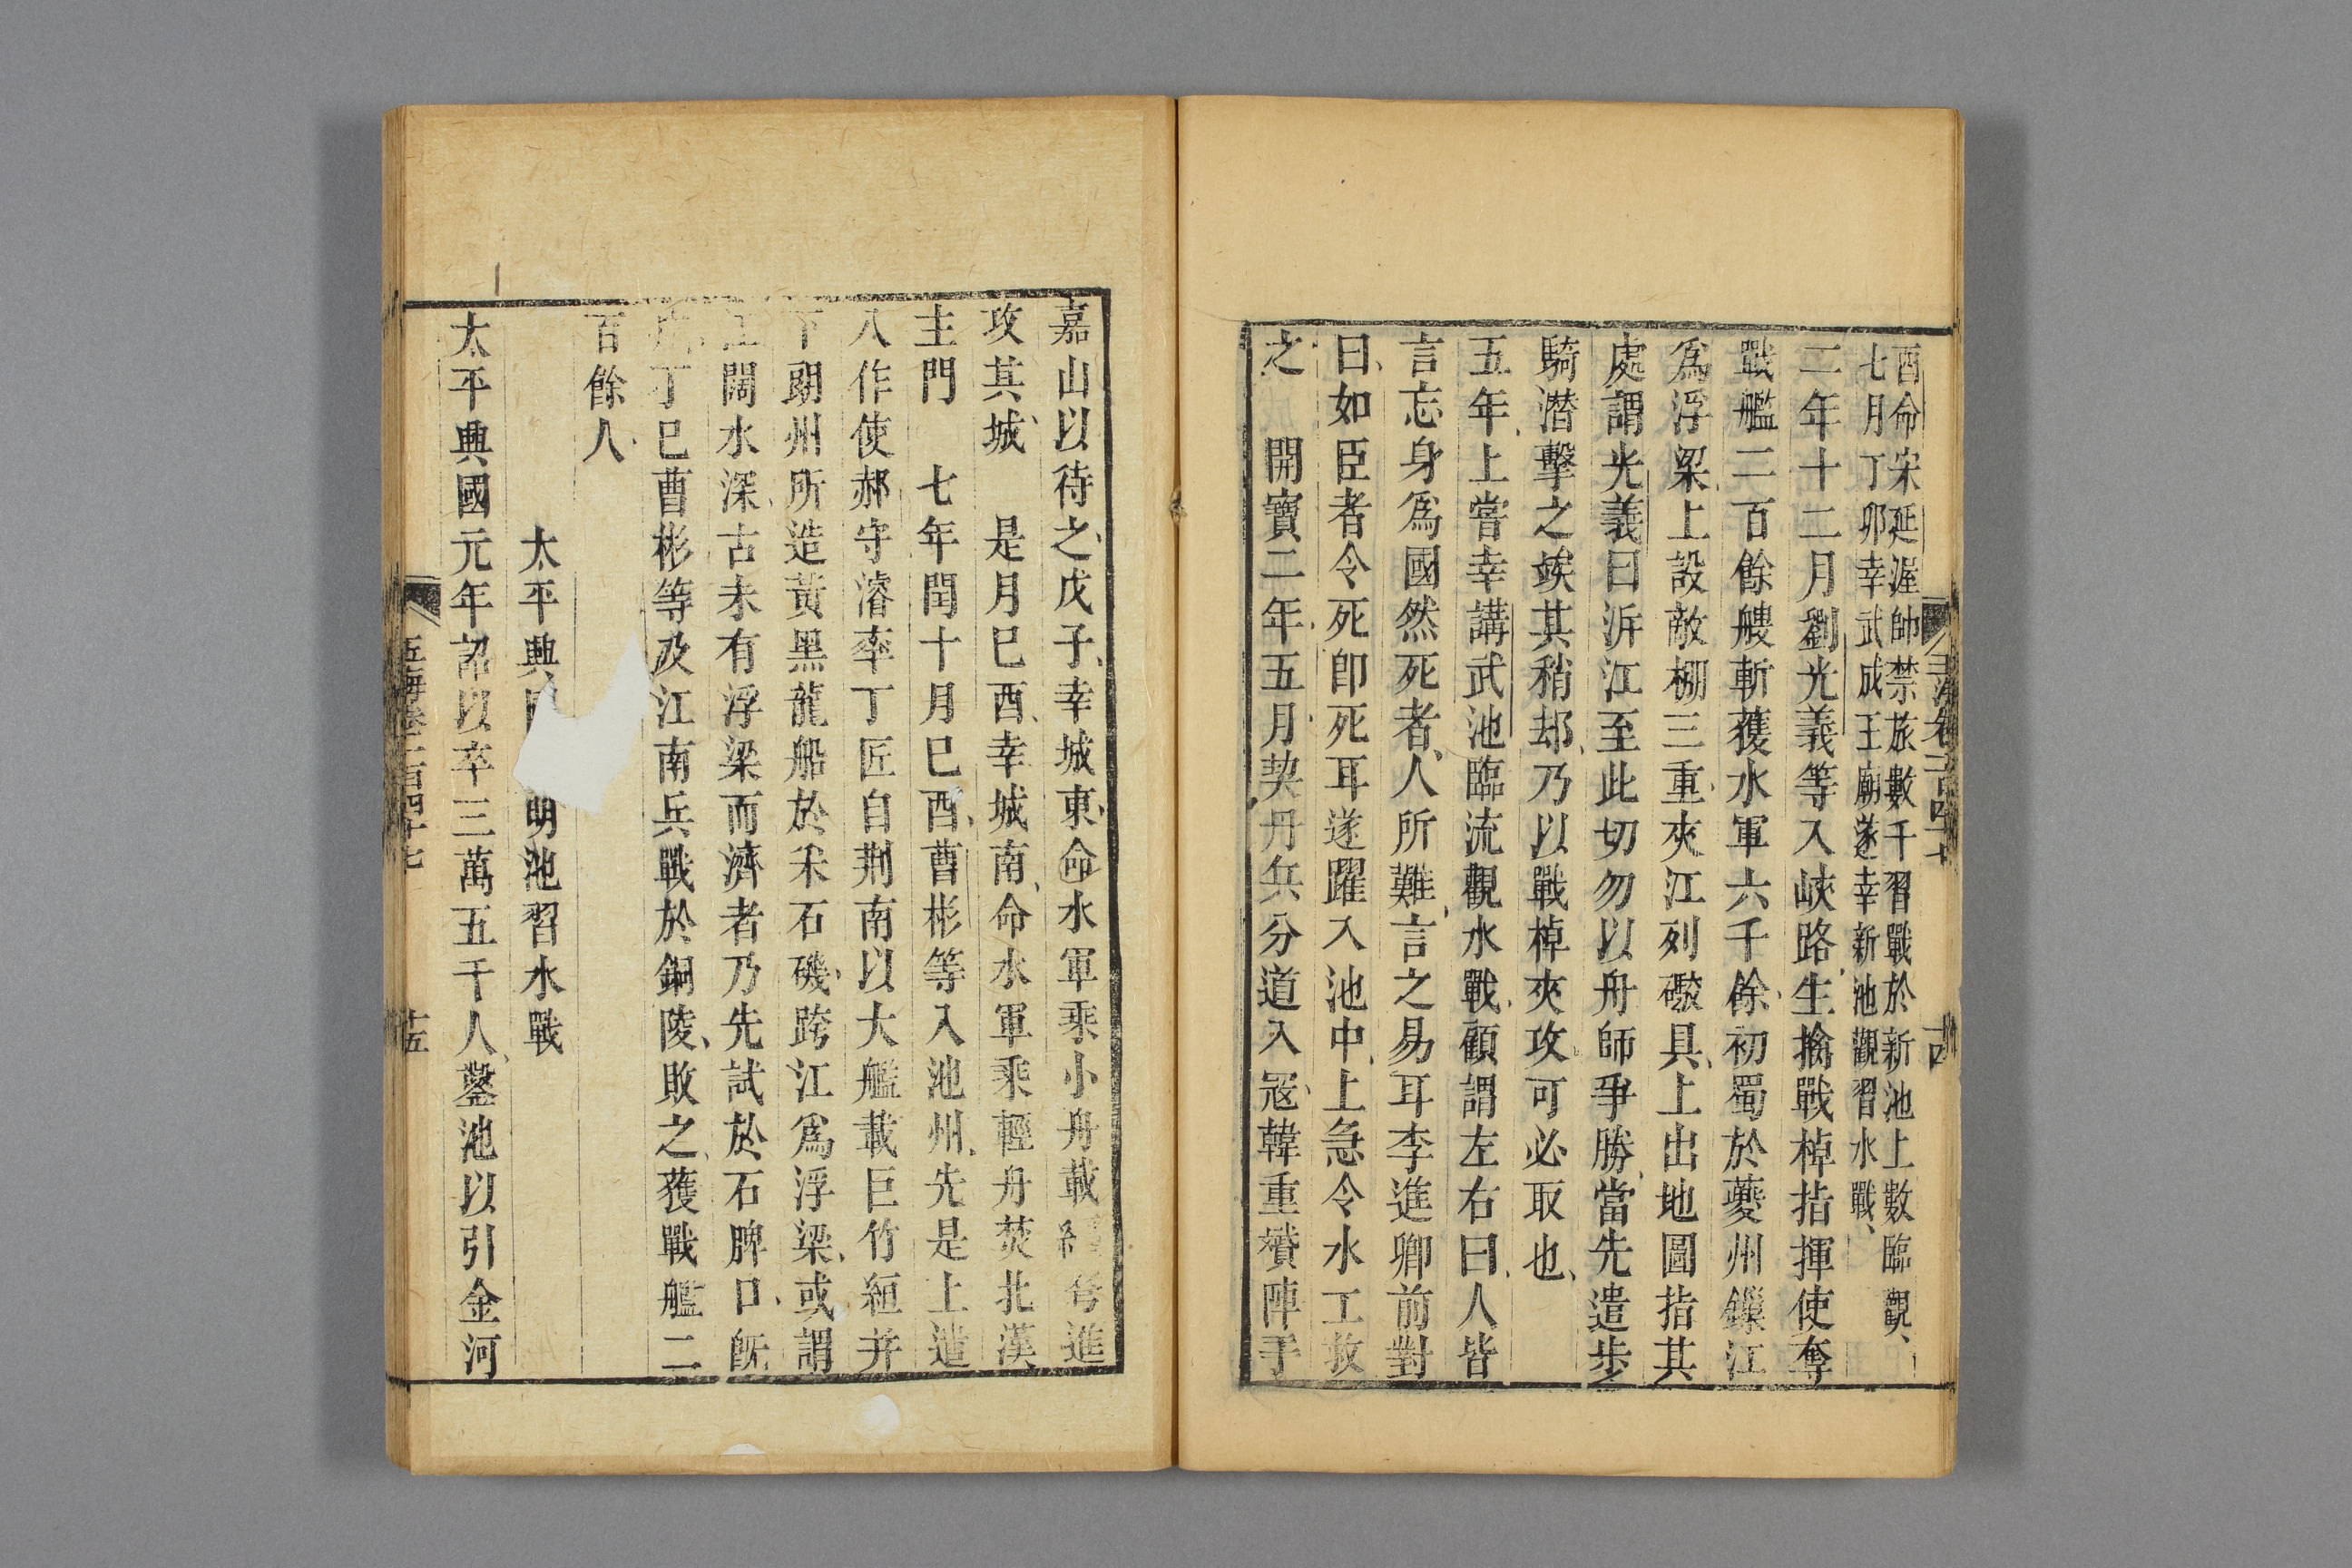 酉命宋延渥帥禁旅數千習戰於新池上數臨觀
七月丁卯幸武成王廟遂幸新池觀習水戰
二年十二月劉光義等入峽路生擒戰棹指揮使奪
戰艦二百餘艘斬獲水軍六千餘初蜀於夔州鏁江
爲浮梁上設敵棚三重夾江列礮具上出地圖指其
處謂光義曰泝江至此切勿以舟師爭勝當先遣步
騎潛擊之竢其稍却乃以戰棹夾攻可必取也
五年上嘗幸講武池臨流觀水戰顧謂左右曰人皆
言忘身爲國然死者人所難言之易耳李進卿前對
曰如臣者令死卽死耳遂躍入池中上急令水工救
之 開寶二年五月契丹兵分道入宼韓重贇陣于
嘉山以待之戊子幸城東命水軍乘小舟載弩進
攻其城 是月巳酉幸城南命水軍乘輕舟焚北漢
主門 七年閏十月巳酉曹彬等入池州先是上遣
八作使郝守濬率丁匠自荆南以大艦載巨竹絙并
下朗州所造黃黑龍船於采石磯跨江爲浮梁或謂
江闊水深古未有浮梁而濟者乃先試於石脾口旣
丁巳曹彬等及江南兵戰於銅陵敗之獲戰艦二
百餘人
太平興明池習水戰
太平興國元年詔以卒三萬五千人鑿池以引金河
玉海卷一百四十七 十五